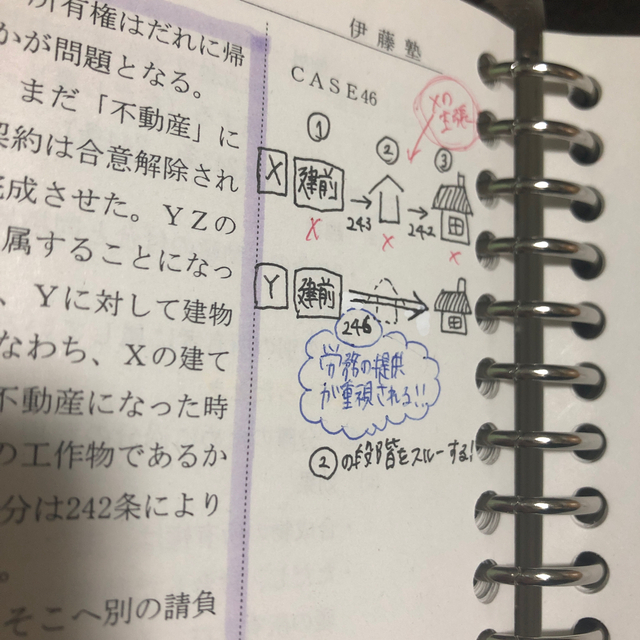 所有権はだれに帰
かが問題となる。
まだ「不動産」に
契約は合意解除され
完成させた。YZの
属することになっ
、Yに対して建物
なわち、Xの建て
不動産になった時
の工作物であるか
分は242条により
。
そこへ別の請負
伊藤塾
CASE46
Xの
主張
① ② ③
X 建前 → 243 → 242
X X X
Y 建前
246
労務の提供
が重視される!!
②の段階をスルーする!